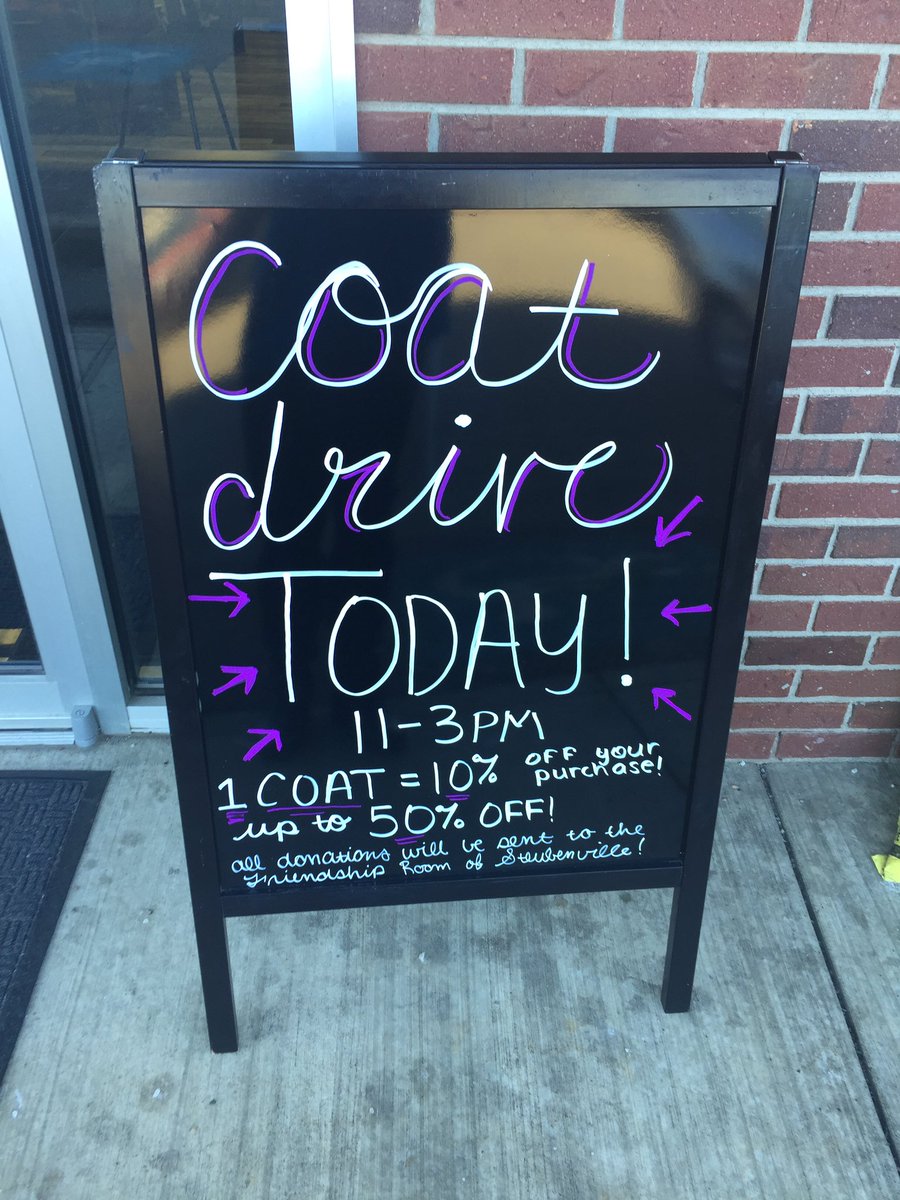 Coat
drive
TODAY!
11-3PM
1 COAT = 10% OFF your purchase!
up to 50% OFF!
all donations will be sent to the
Friendship Room of Steubenville!